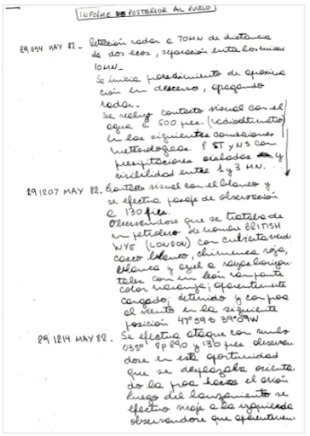 INFORME DE POSTERIOR AL VUELO
29 1154 MAY 82.- Detección radar a 70MN de distancia
de dos ecos, separación entre los mismos
10 MN.-
Se inicia procedimiento de aproxima
ción en descenso, apagando
radar.
Se realiza contacto visual con el
agua a 500 pies (radioaltímetro)
en las siguientes condiciones
meteorológicas 8 ST y NS con
precipitaciones aisladas y
visibilidad entre 1 y 3 MN.
29 1207 MAY 82. Contacto visual con el blanco y
se efectúa pasaje de observación
a 130 pies.
Observándose que se trataba de
un petrolero de nombre BRITISH
WYE (LONDON) con cubierta verde
casco blanco, chimenea roja,
blanca y azul a rayas horizon
tales con un león rampante
color naranja, aparentemente
cargado; detenido y con proa
al viento en la siguiente
posición 47°59S 39°09W
29 1214 MAY 82. Se efectúa ataque con rumbo
035° y 130 pies observán
dose en esta oportunidad
que se desplazaba orienta
do la proa hacia el avión
luego del lanzamiento se
efectúa viraje a la izquierda
observándose que aparentemen.